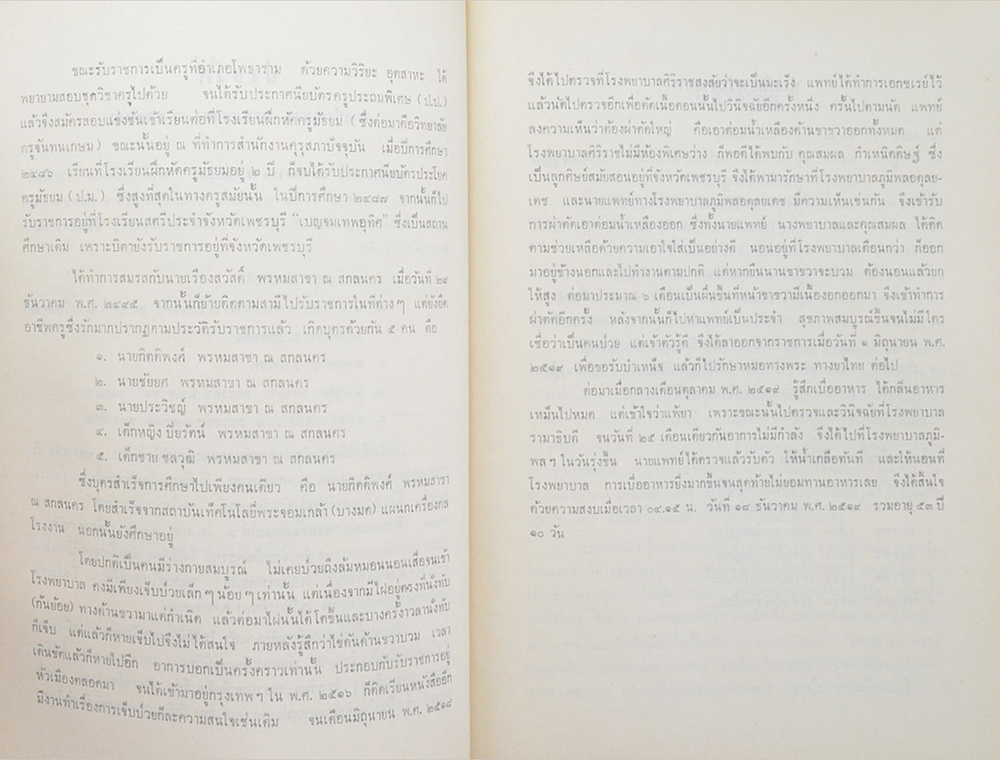 ขณะรับราชการเป็นครูที่อำเภอโพธาราม ด้วยความวิริยะ อุตสาหะ ได้
พยายามสอบชุดวิชาครูไปด้วย จนได้รับประกาศนียบัตรครูประถมพิเศษ (ป.ป.)
แล้วจึงสมัครสอบแข่งขันเข้าเรียนต่อที่โรงเรียนฝึกหัดครูมัธยม (ซึ่งต่อมาคือวิทยาลัย
ครูจันทนเกษม) ขณะนั้นอยู่ ณ ที่ทำการสำนักงานคุรุสภาปัจจุบัน เมื่อปีการศึกษา
๒๔๘๖ เรียนที่โรงเรียนฝึกหัดครูมัธยมอยู่ ๒ ปี ก็จบได้รับประกาศนียบัตรประโยค
ครูมัธยม (ป.ม.) ซึ่งสูงที่สุดในทางครูสมัยนั้น ในปีการศึกษา ๒๔๘๗ จากนั้นก็ไป
รับราชการอยู่ที่โรงเรียนสตรีประจำจังหวัดเพชรบุรี “เบญจมเทพอุทิศ” ซึ่งเป็นสถาน
ศึกษาเดิม เพราะบิดายังรับราชการอยู่ที่จังหวัดเพชรบุรี
ได้ทำการสมรสกับนายเรืองสวัสดิ์ พรหมสาขา ณ สกลนคร เมื่อวันที่ ๒๙
ธันวาคม พ.ศ. ๒๔๙๕ จากนั้นก็ย้ายติดตามสามีไปรับราชการในที่ต่างๆ แต่ยังยึด
อาชีพครูซึ่งรักมากปรากฏตามประวัติรับราชการแล้ว เกิดบุตรด้วยกัน ๕ คน คือ
๑. นายกิตติพงศ์ พรหมสาขา ณ สกลนคร
๒. นายชัยยศ พรหมสาขา ณ สกลนคร
๓. นายประวิชญ์ พรหมสาขา ณ สกลนคร
๔. เด็กหญิง ปิยรัตน์ พรหมสาขา ณ สกลนคร
๕. เด็กชาย ชลวุฒิ พรหมสาขา ณ สกลนคร
ซึ่งบุตรสำเร็จการศึกษาไปเพียงคนเดียว คือ นายกิตติพงศ์ พรหมสาขา
ณ สกลนคร โดยสำเร็จจากสถาบันเท็คโนโลยีพระจอมเกล้า (บางมด) แผนกเครื่องกล
โรงงาน นอกนั้นยังศึกษาอยู่
โดยปกติเป็นคนมีร่างกายสมบูรณ์ ไม่เคยป่วยถึงล้มหมอนนอนเสื่อจนเข้า
โรงพยาบาล คงมีเพียงเจ็บป่วยเล็กๆน้อยๆเท่านั้น แต่เนื่องจากมีไฝอยู่ตรงที่นั่งทับ
(ก้นย้อย) ทางด้านขวามาแต่กำเนิด แล้วต่อมาไฝนั้นได้โตขึ้นและบางครั้งเวลานั่งทับ
ก็เจ็บ แต่แล้วก็หายเจ็บไปจึงไม่ได้สนใจ ภายหลังรู้สึกว่าไข่ดันด้านขวาบวม เวลา
เดินขัดแล้วก็หายไปอีก อาการบอกเป็นครั้งคราวเท่านั้น ประกอบกับรับราชการอยู่
หัวเมืองตลอดมา จนได้เข้ามาอยู่กรุงเทพฯใน พ.ศ. ๒๕๑๖ ก็คิดเรียนหนังสืออีก
มีงานทำเรื่องการเจ็บป่วยก็ละความสนใจเช่นเดิม จนเดือนมิถุนายน พ.ศ. ๒๕๑๘
จึงได้ไปตรวจที่โรงพยาบาลศิริราชสงสัยว่าจะเป็นมะเร็ง แพทย์ได้ทำการเอกซเรย์ไว้
แล้วนัดไปตรวจอีกเพื่อตัดเนื้อตอนนั้นไปวินิจฉัยอีกครั้งหนึ่ง ครั้นไปตามนัด แพทย์
ลงความเห็นว่าต้องผ่าตัดใหญ่ คือเอาต่อมน้ำเหลืองด้านขาขวาออกทั้งหมด แต่
โรงพยาบาลศิริราชไม่มีห้องพิเศษว่าง ก็พอดีได้พบกับ คุณสมผล กำเหนิดดิษฐ์ ซึ่ง
เป็นลูกศิษย์สมัยสอนอยู่ที่จังหวัดเพชรบุรี จึงได้พามารักษาที่โรงพยาบาลภูมิพลอดุลย-
เดช และนายแพทย์ทางโรงพยาบาลภูมิพลอดุลยเดช มีความเห็นเช่นกัน จึงเข้ารับ
การผ่าตัดเอาต่อมน้ำเหลืองออก ซึ่งทั้งนายแพทย์ นางพยาบาลและคุณสมผล ได้ติด
ตามช่วยเหลือด้วยความเอาใจใส่เป็นอย่างดี นอนอยู่ที่โรงพยาบาลเดือนกว่า ก็ออก
มาอยู่ข้างนอกและไปทำงานตามปกติ แต่หากยืนนานขาขวาจะบวม ต้องนอนแล้วยก
ให้สูง ต่อมาประมาณ ๖ เดือนเป็นผื่นขึ้นที่หน้าขาขวามีเนื้องอกออกมา จึงเข้าทำการ
ผ่าตัดอีกครั้ง หลังจากนั้นก็ไปหาแพทย์เป็นประจำ สุขภาพสมบูรณ์ขึ้นจนไม่มีใคร
เชื่อว่าเป็นคนป่วย แต่เจ้าตัวรู้ดี จึงได้ลาออกจากราชการเมื่อวันที่ ๑ มิถุนายน พ.ศ.
๒๕๑๙ เพื่อขอรับบำเหน็จ แล้วก็ไปรักษาหมอทางพระ ทางยาไทย ต่อไป
ต่อมาเมื่อกลางเดือนตุลาคม พ.ศ. ๒๕๑๙ รู้สึกเบื่ออาหาร ได้กลิ่นอาหาร
เหม็นไปหมด แต่เข้าใจว่าแพ้ยา เพราะขณะนั้นไปตรวจและวินิจฉัยที่โรงพยาบาล
รามาธิบดี จนวันที่ ๒๕ เดือนเดียวกันอาการไม่มีกำลัง จึงได้ไปที่โรงพยาบาลภูมิ-
พลฯในวันรุ่งขึ้น นายแพทย์ได้ตรวจแล้วรับตัว ให้น้ำเกลือทันที และให้นอนที่
โรงพยาบาล การเบื่ออาหารยิ่งมากขึ้นจนสุดท้ายไม่ยอมทานอาหารเลย จึงได้สิ้นใจ
ด้วยความสงบเมื่อเวลา ๐๔.๑๕ น. วันที่ ๑๘ ธันวาคม พ.ศ. ๒๕๑๙ รวมอายุ ๕๓ ปี
๑๐ วัน